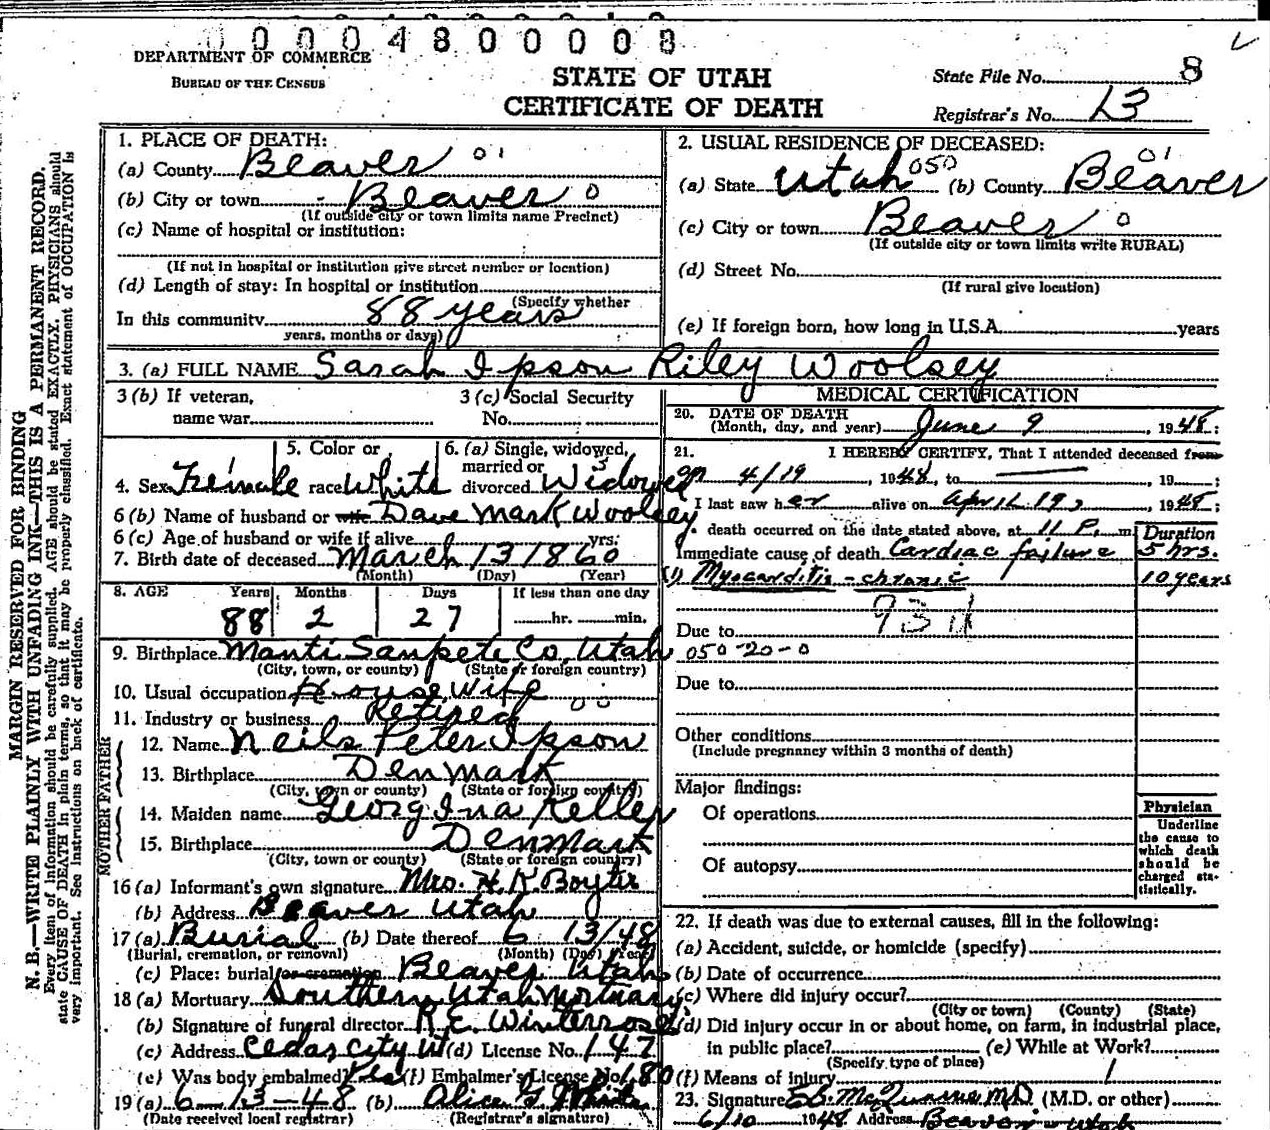 0 0 0 4 8 0 0 0 0 8
DEPARTMENT OF COMMERCE
BUREAU OF THE CENSUS
STATE OF UTAH
CERTIFICATE OF DEATH
State File No. 8
Registrar's No. 13
MARGIN RESERVED FOR BINDING
N. B.—WRITE PLAINLY WITH UNFADING INK—THIS IS A PERMANENT RECORD.
Every item of information should be carefully supplied. AGE should be stated EXACTLY. PHYSICIANS should
state CAUSE OF DEATH in plain terms, so that it may be properly classified. Exact statement of OCCUPATION is
very important. See instructions on back of certificate.
1. PLACE OF DEATH:
(a) County Beaver 01
(b) City or town Beaver 0
(If outside city or town limits name Precinct)
(c) Name of hospital or institution:
(If not in hospital or institution give street number or location)
(d) Length of stay: In hospital or institution
(Specify whether
In this community 88 years
years, months or days)
2. USUAL RESIDENCE OF DECEASED:
(a) State Utah 050 (b) County Beaver 01
(c) City or town Beaver 0
(If outside city or town limits write RURAL)
(d) Street No.
(If rural give location)
(e) If foreign born, how long in U.S.A. years
3. (a) FULL NAME Sarah Ipson Riley Woolsey
3 (b) If veteran,
name war
3 (c) Social Security
No.
4. Sex Female
5. Color or
race White
6. (a) Single, widowed,
married or
divorced Widowed
6 (b) Name of husband or wife Dave Mark Woolsey
6 (c) Age of husband or wife if alive yrs.
7. Birth date of deceased March 13 1860
(Month) (Day) (Year)
8. AGE Years Months Days If less than one day
88 2 27 hr. min.
9. Birthplace Manti Sanpete Co, Utah
(City, town, or county) (State or foreign country)
10. Usual occupation House Wife
11. Industry or business Retired 00
MOTHER FATHER
12. Name Neils Peter Ipson
13. Birthplace Denmark
(City, town or county) (State or foreign country)
14. Maiden name Georgina Keller
15. Birthplace Denmark
(City, town or county) (State or foreign country)
16 (a) Informant's own signature Mrs. H. K Boyter
(b) Address Beaver Utah
17 (a) Burial (b) Date thereof 6 13/48
(Burial, cremation, or removal) (Month) (Day) (Year)
(c) Place: burial or cremation Beaver Utah
18 (a) Mortuary Southern Utah Mortuary
(b) Signature of funeral director R. E. Winterrose
(c) Address Cedar City Ut (d) License No. 147
(e) Was body embalmed? Yes (f) Embalmer's License No. 180
19 (a) 6-13-48 (b) Alice White
(Date received local registrar) (Registrar's signature)
MEDICAL CERTIFICATION
20. DATE OF DEATH
(Month, day, and year) June 9, 1948;
21. I HEREBY CERTIFY, That I attended deceased from
on 4/19, 1948, to , 19 ;
I last saw her alive on April 19, 1948;
death occurred on the date stated above, at 11 P. m.
Duration
Immediate cause of death Cardiac failure 5 hrs.
(1) Myocarditis - chronic 10 years
93d
Due to
050-20-0
Due to
Other conditions
(Include pregnancy within 3 months of death)
Major findings:
Of operations
Of autopsy
Physician
Underline
the cause to
which death
should be
charged sta-
tistically.
22. If death was due to external causes, fill in the following:
(a) Accident, suicide, or homicide (specify)
(b) Date of occurrence
(c) Where did injury occur?
(City or town) (County) (State)
(d) Did injury occur in or about home, on farm, in industrial place,
in public place? (e) While at Work?
(Specify type of place)
(f) Means of injury
23. Signature McQuarrie M.D. (M.D. or other)
6/10 1948 Address Beaver Utah